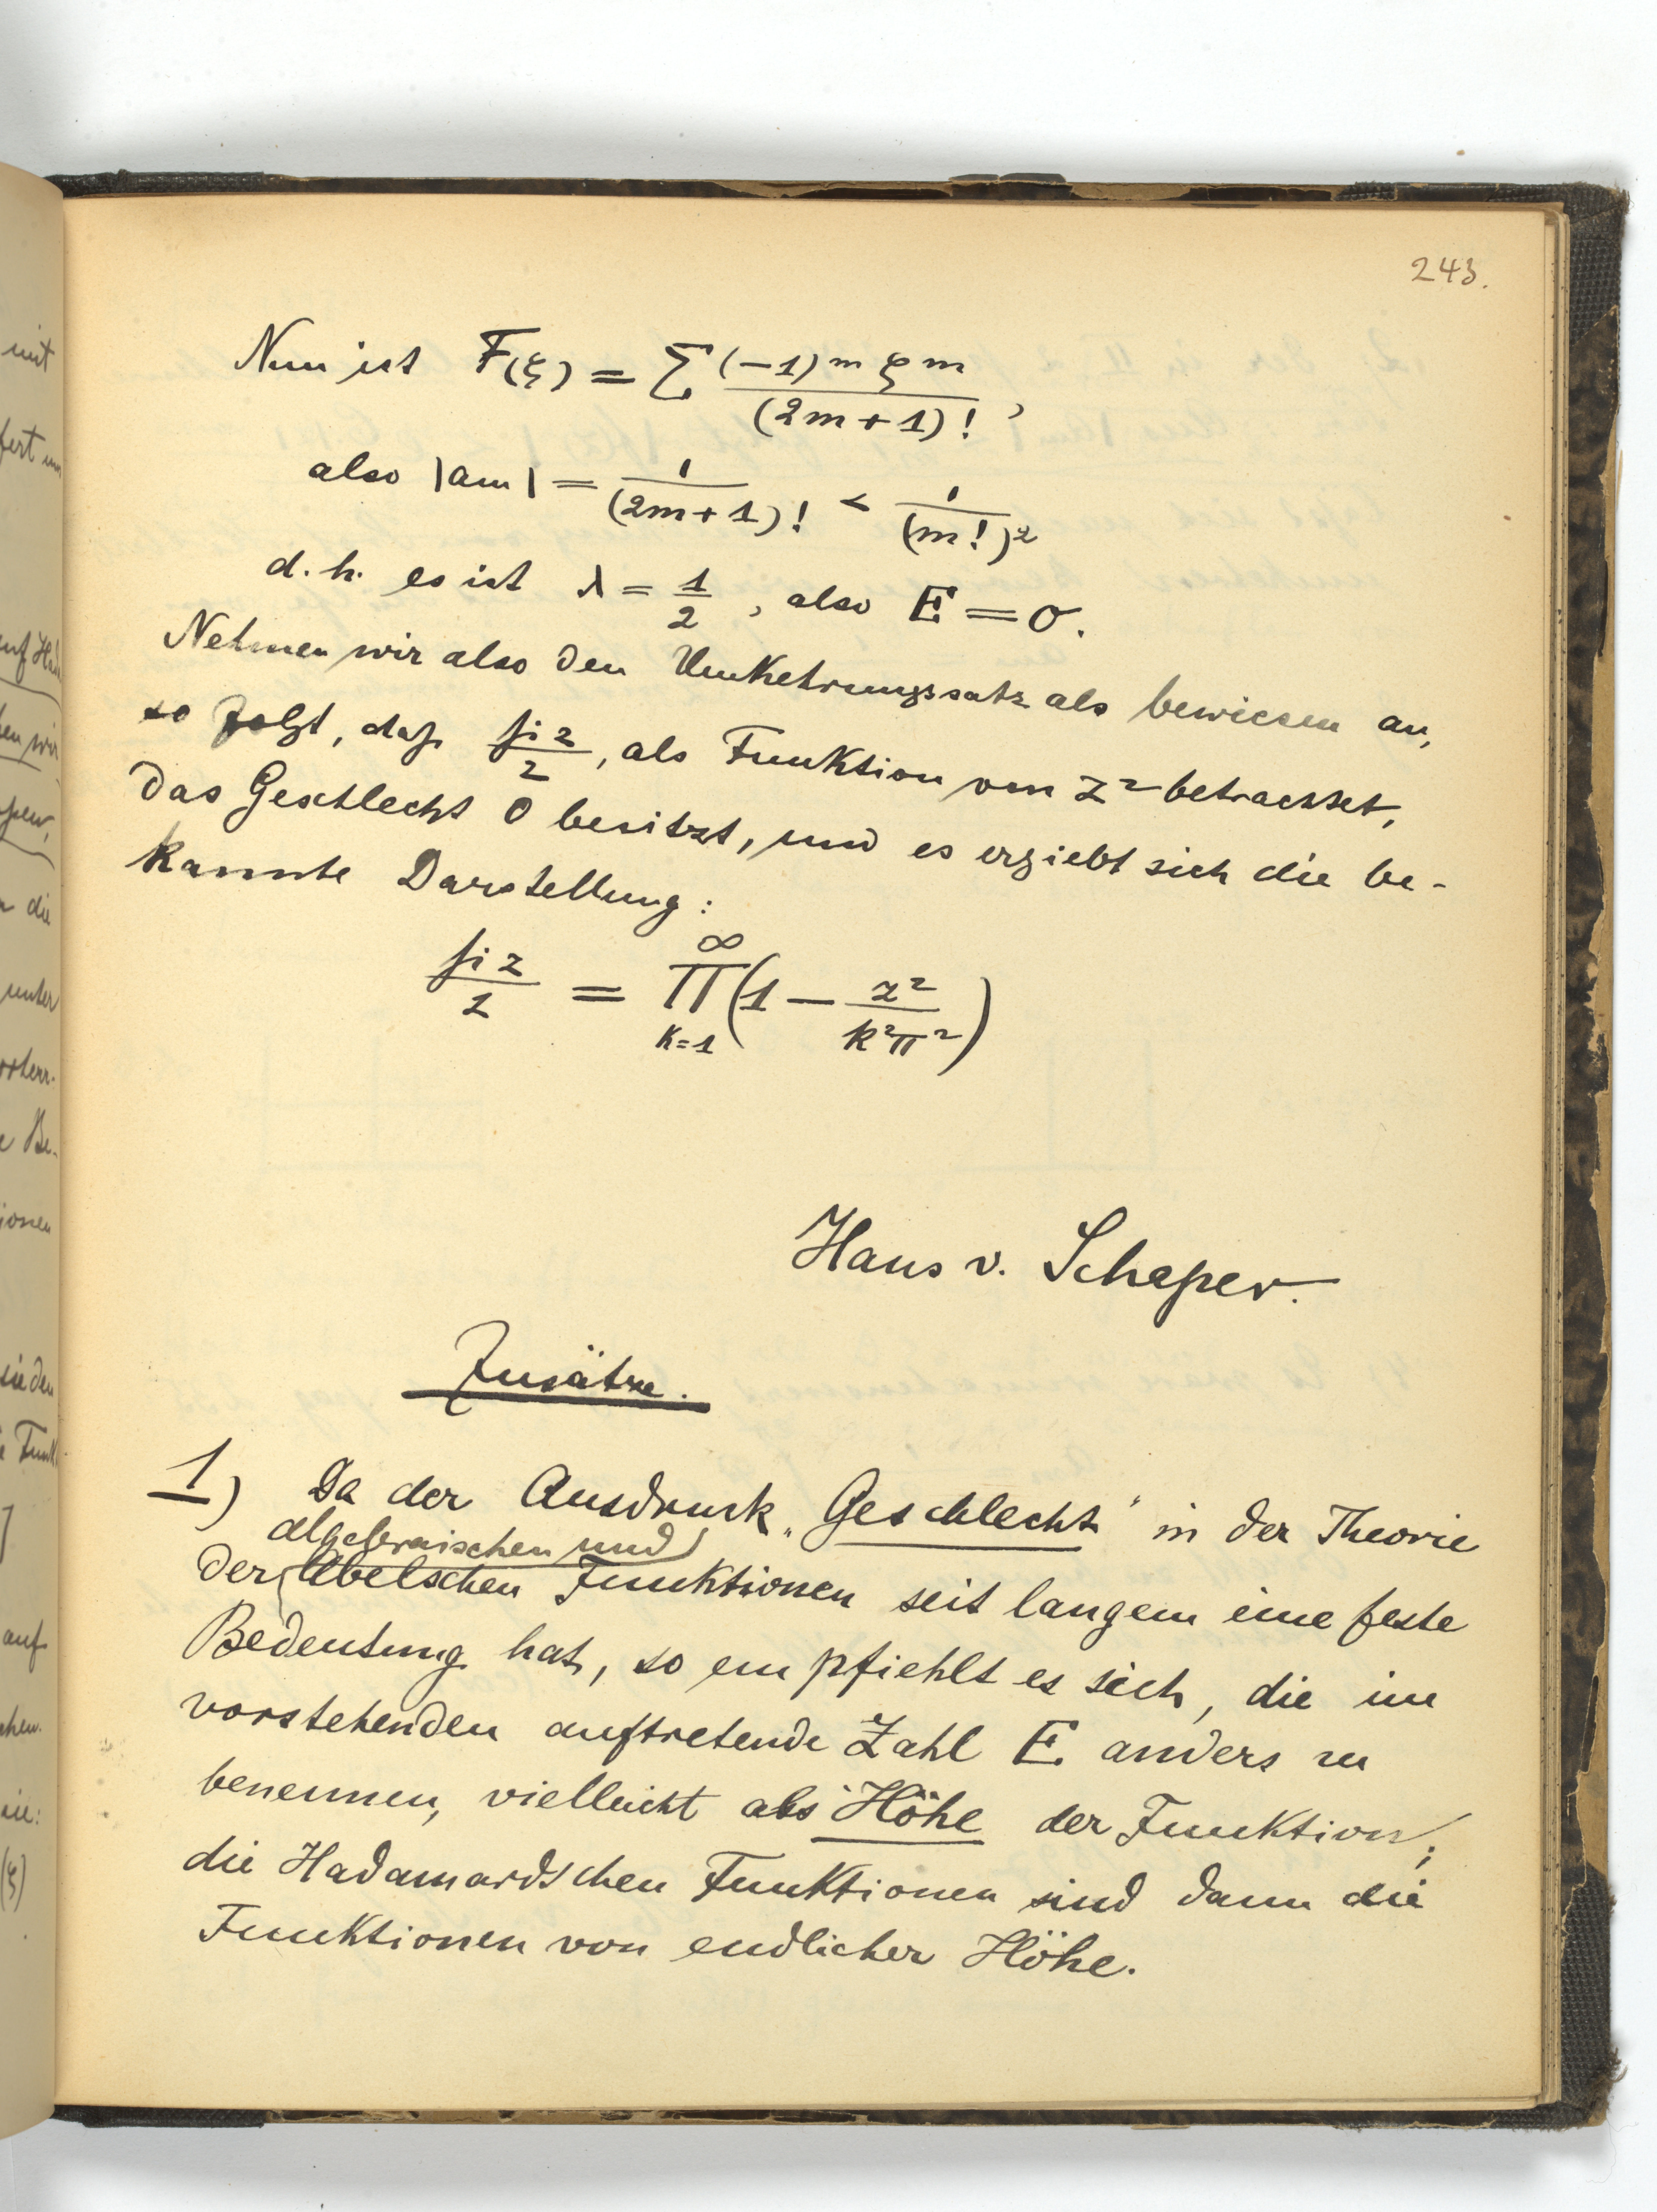 243.
Nun ist F(ξ) = Σ (-1)^m ξ^m / (2m+1)! ,
also |am| = 1/(2m+1)! < 1/(m!)²
d.h. es ist λ = 1/2 , also E = 0.
Nehmen wir also den Umkehrungssatz als bewiesen an,
so folgt, daß si z/z , als Funktion von z² betrachtet,
das Geschlecht 0 besitzt, und es ergiebt sich die be-
kannte Darstellung:
si z/z = ∏_{k=1}^{∞} (1 - z²/k²π²)
Hans v. Schaper.
Zusätze.
1) Da der Ausdruck „Geschlecht" in der Theorie
algebraischen und
der Abelschen Funktionen seit langem eine feste
Bedeutung hat, so empfiehlt es sich, die im
vorstehenden auftretende Zahl E anders zu
benennen, vielleicht als "Höhe der Funktion;
die Hadamardschen Funktionen sind dann die
Funktionen von endlicher Höhe.
mit
die
unter
Be-
ionen
auf
(ξ)